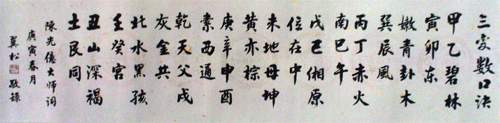 三變数口诀
甲乙碧林
寅卯东
嫩青卦木
巽辰風
丙丁赤火
南巳午
戊己缃原
位在中
未地母坤
黄亦棕
庚辛申酉
素西通
乾天父戌
灰金共
北水黑孩
壬癸宫
丑山深褐
土艮同
陳光億大师词
庚寅春月
松敬録